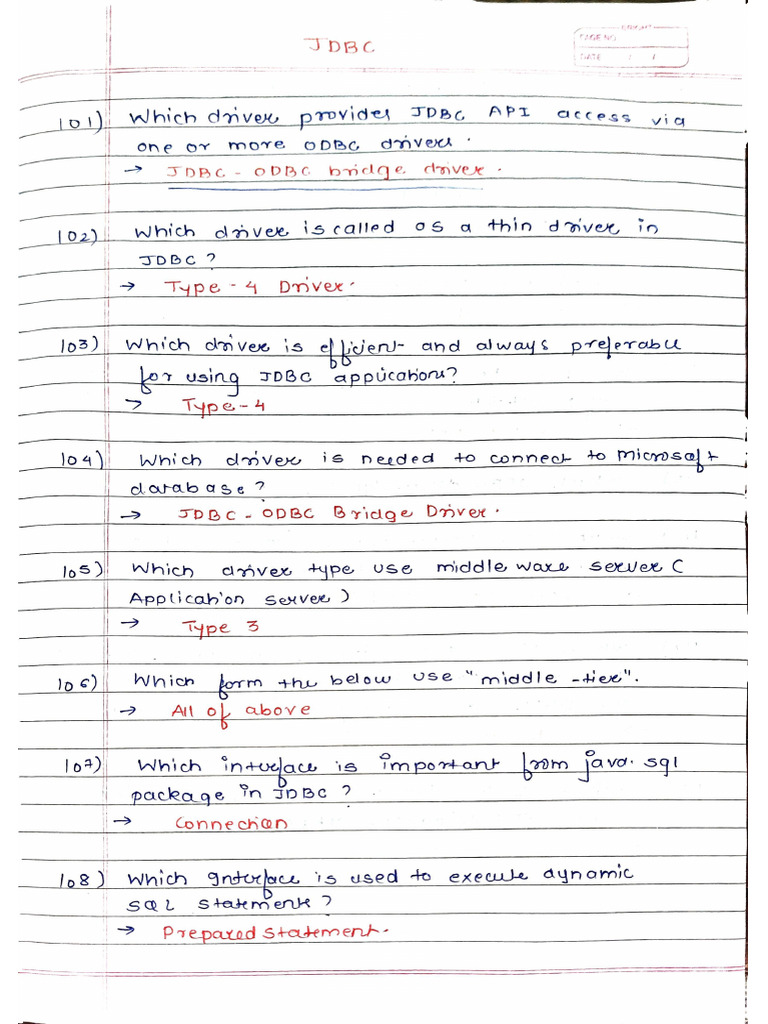 JDBC
BRIGHT
PAGE NO.
DATE / /
101) Which driver provides JDBC API access via
one or more ODBC drivers.
→ JDBC - ODBC bridge driver.
102) Which driver is called as a thin driver in
JDBC?
→ Type - 4 Driver.
103) Which driver is efficient and always preferable
for using JDBC applications?
→ Type - 4
104) Which driver is needed to connect to microsoft
database?
→ JDBC - ODBC Bridge Driver.
105) Which driver type use middle ware server (
Application server)
→ Type 3
106) Which form the below use "middle -tier".
→ All of above
107) Which interface is important from java.sql
package in JDBC?
→ Connection
108) Which Interface is used to execute dynamic
SQL statements?
→ Prepared statement.